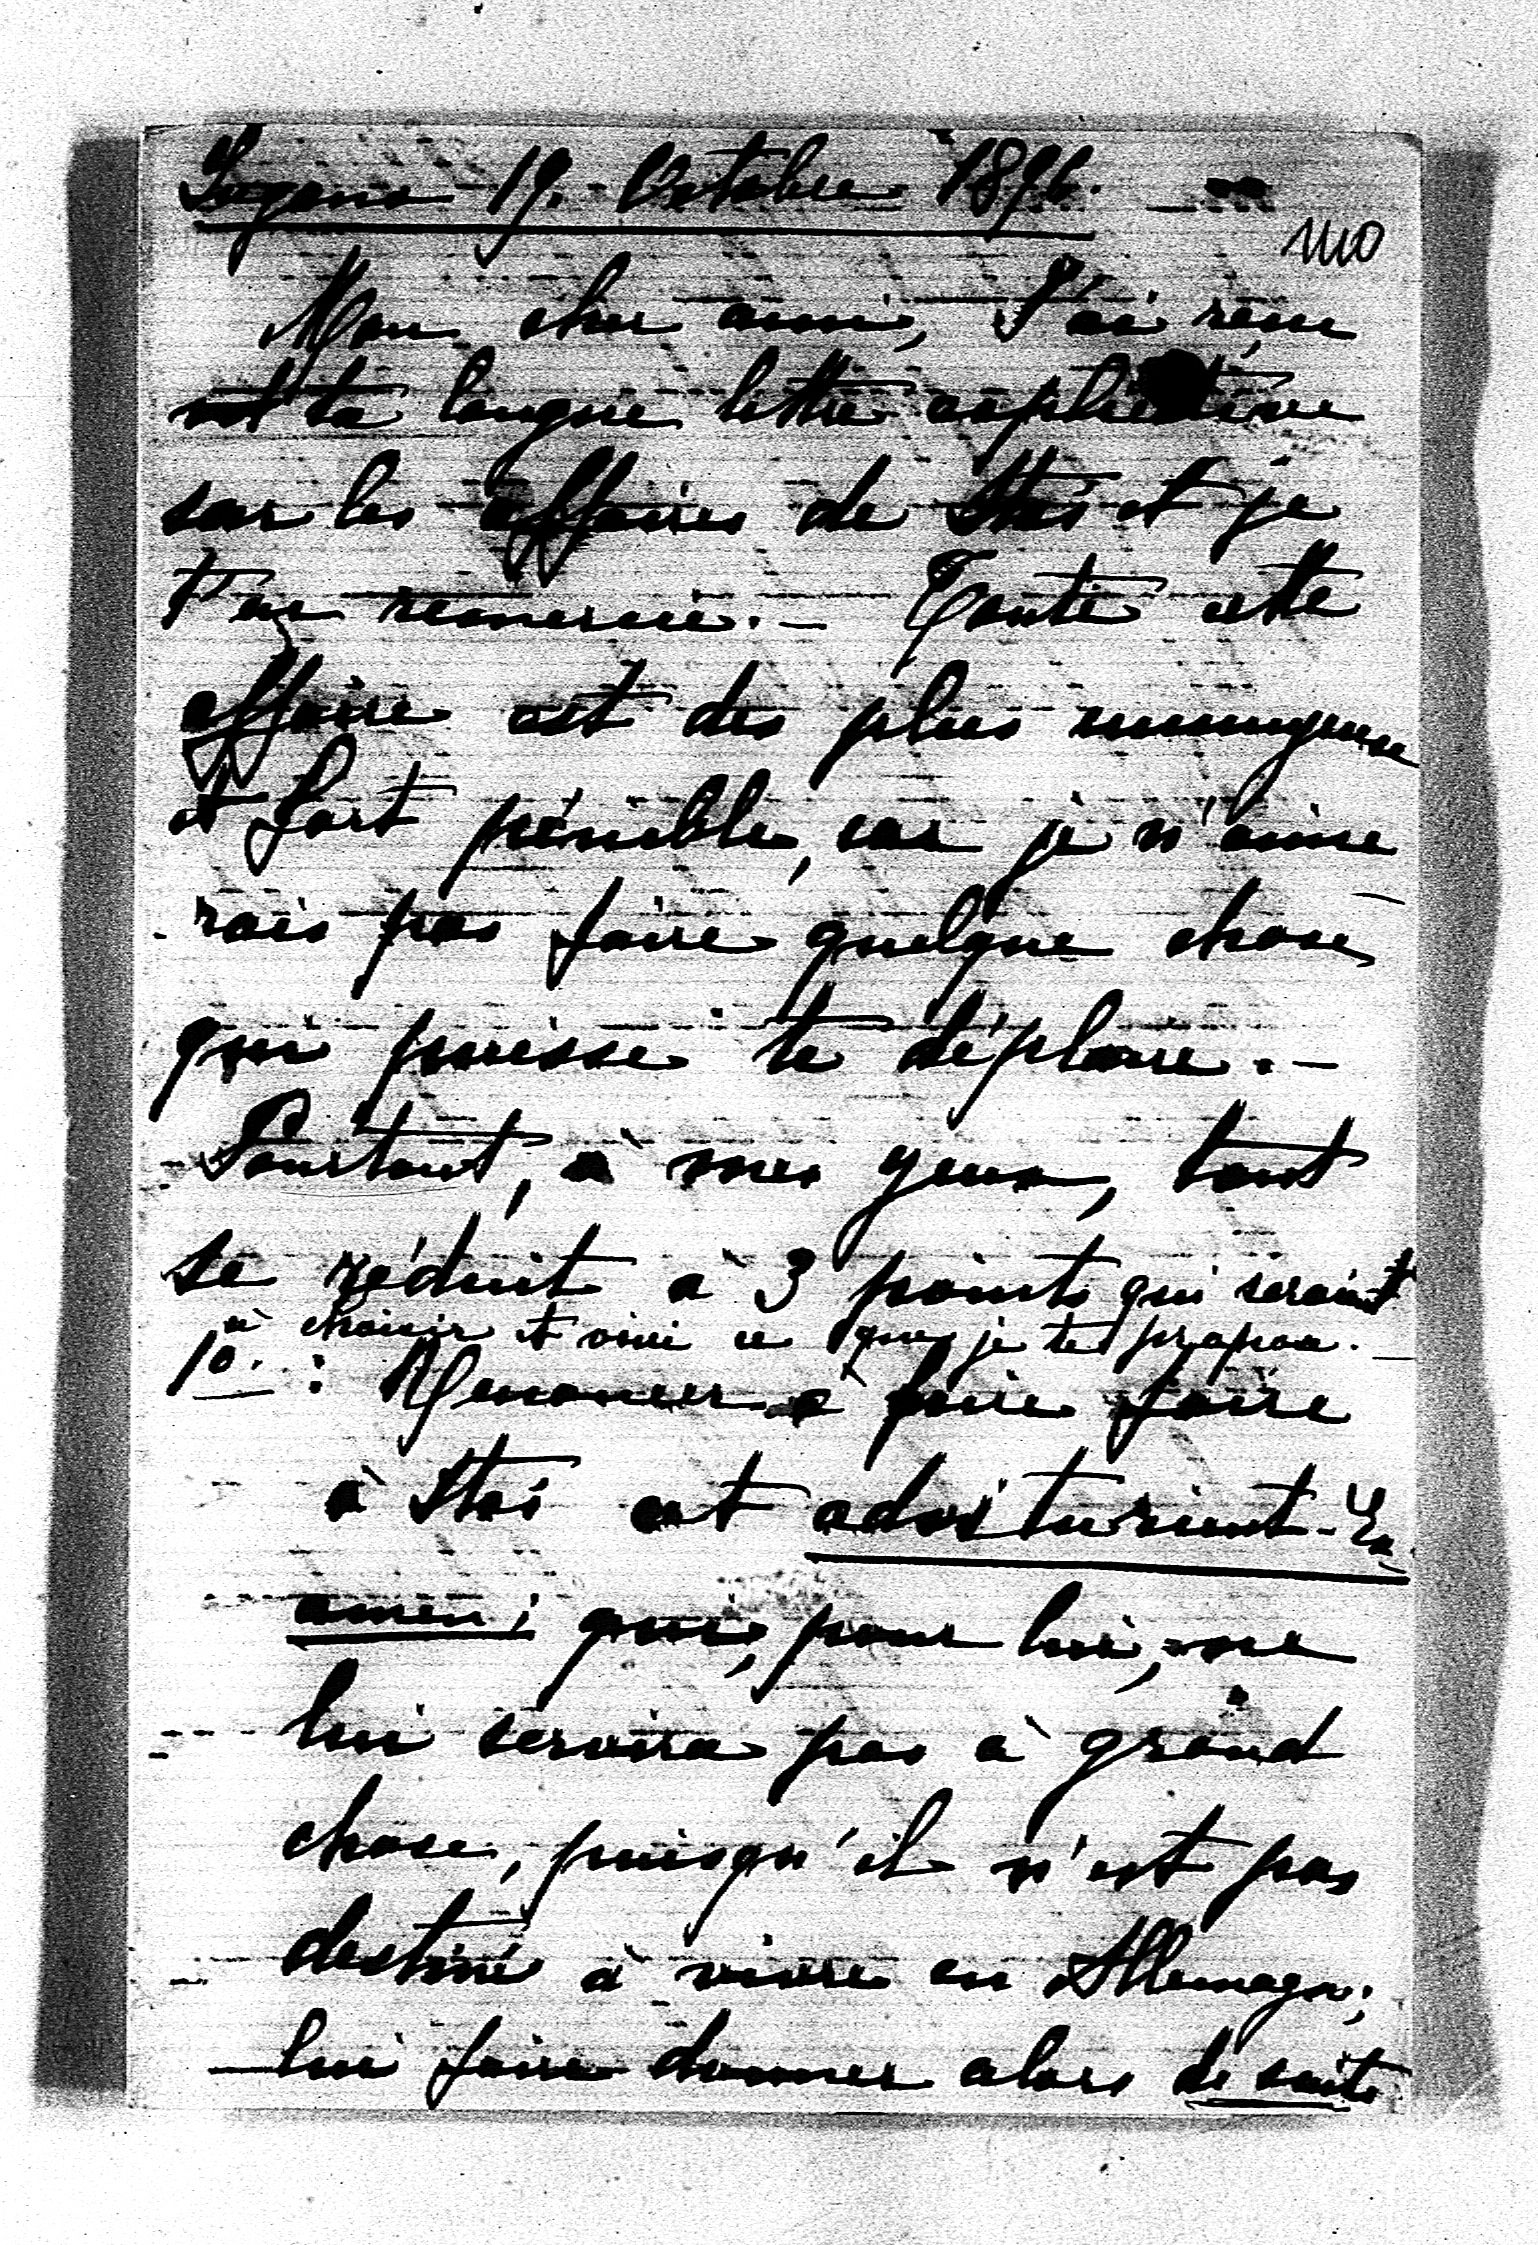 Logano 19. Octobre 1896.
1110
Mon cher ami, J'ai recu
ta longue lettre explicative
sur les affaires de Stoï et je
t'en remercie. — Toute cette
affaire est des plus ennuyeuse
et fort pénible, car je n'aime
rais pas faire quelque chose
qui puisse te déplaire. —
Pourtant, à mes yeux, tout
se réduit à 3 points qui seraient
à choisir et voici ce que je te propose. —
1o. : Renoncer à faire faire
à Stoï cet abiturient-Ex
amen; qui, pour lui, ne
lui servira pas à grand
chose, puisqu'il n'est pas
destiné à vivre en Allemagn;
lui faire donner alors de suite